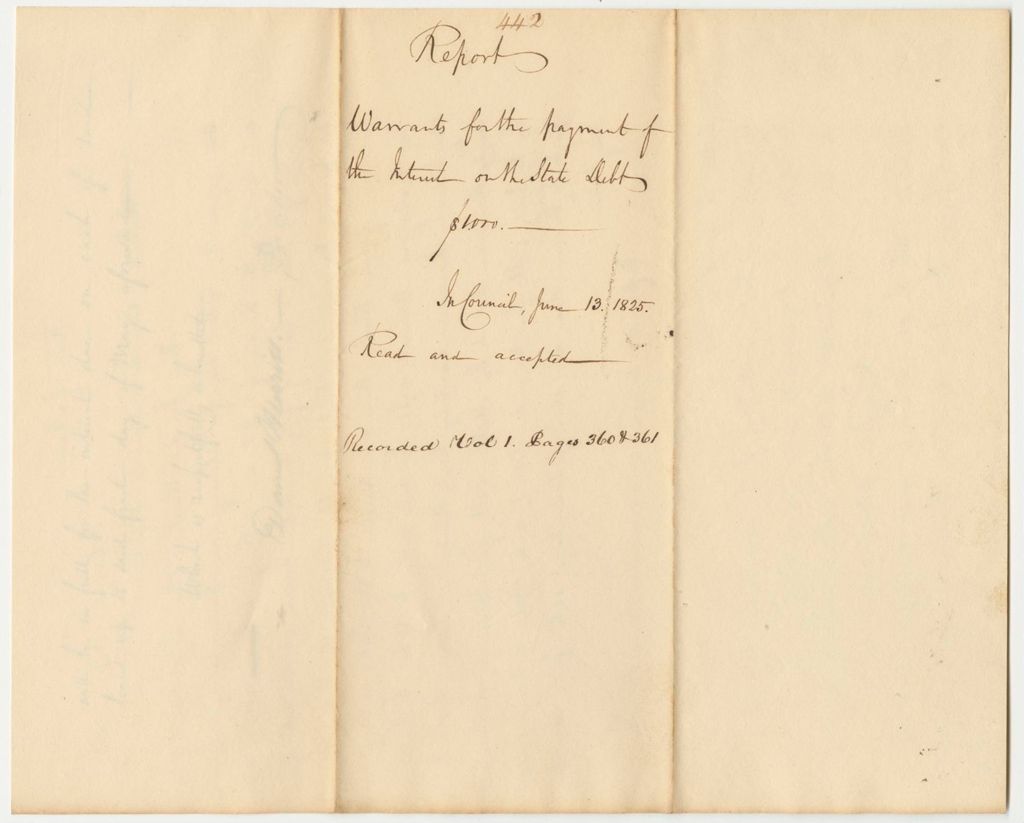 442
Report
Warrants for the payment of
the Interest on the State Debt
$1000.
In Council, June 13. 1825.
Read and accepted
Recorded Vol 1. Pages 360 & 361